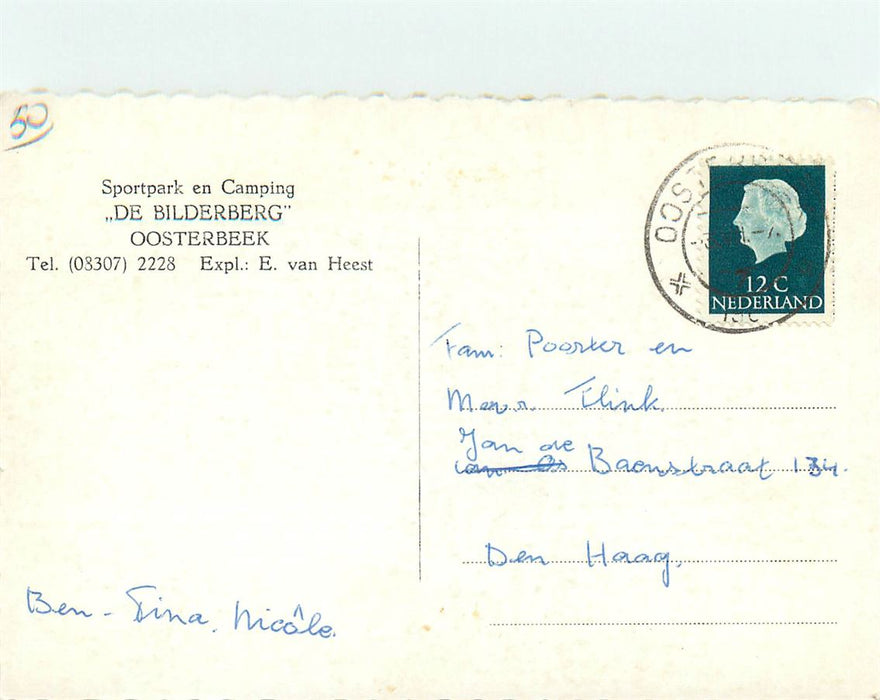 50
Sportpark en Camping
„DE BILDERBERG”
OOSTERBEEK
Tel. (08307) 2228 Expl.: E. van Heest
12 C
NEDERLAND
Fam: Poorter en
Mevr. Flink.
Jan de
Baenstraat
Den Haag,
Ben - Tina, Nicôle.